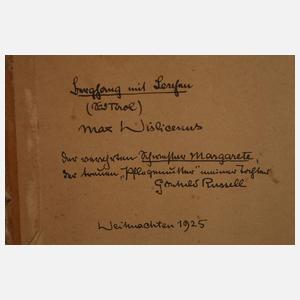 Berghang mit Lerchen
(Südtirol)
Max Wislicenus
Der verehrten Schwester Margarete,
der treuen „Pflegemutter" meiner Tochter
Russell
Weihnachten 1925